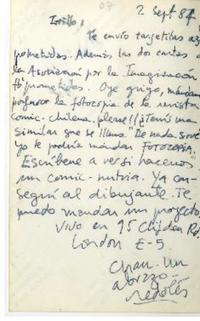 2 Sept 84
Te envío tarjetitas
prometidas. Además las dos cartas a
la Asociación por la Imaginación
prometidas. Oye gringo, mándame
porfavor la fotocopia de la revista
comic-chilena, please!! ¿Tenís una
similar que se llama "De nada sirve"
yo te podría mandar FOTOCOPIA.
Escríbeme a ver si hacemos
un comic-nutria. Ya con-
seguí al dibujante. Te
puedo mandar un proyecto.
Vivo en 95 Clifden Rd.
London E-5.
Chau. Un
abrazo-
redolés